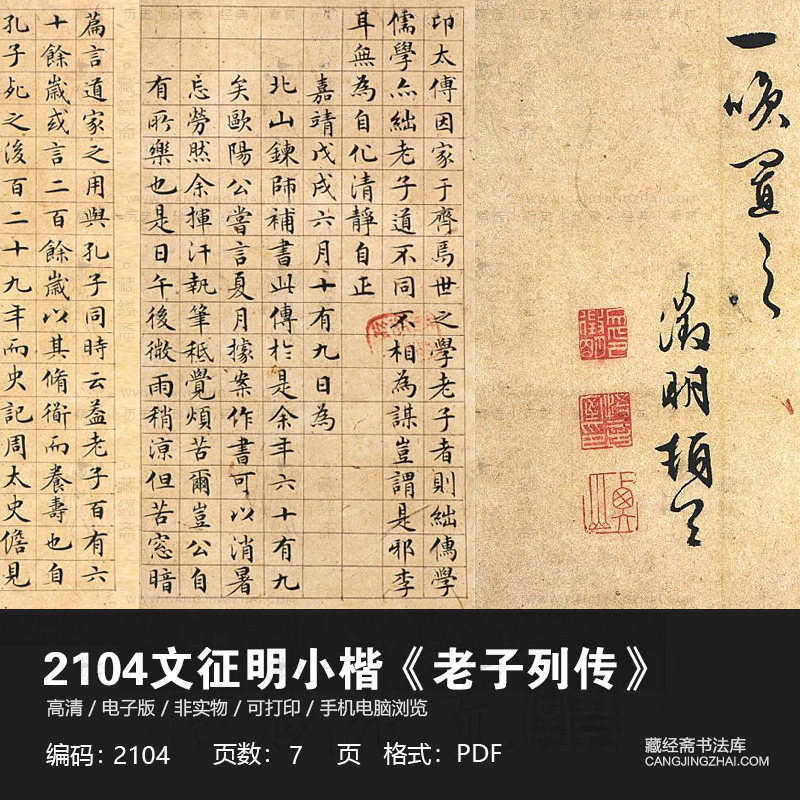 徵明頓首
卬太傅因家于齊焉世之學老子者則絀儒學
儒學亦絀老子道不同不相為謀豈謂是邪李
耳無為自化清靜自正
嘉靖戊戌六月十有九日為
北山鍊師補書此傳於是余年六十有九
矣歐陽公嘗言夏月據案作書可以消暑
忘勞然余揮汗執筆秪覺煩苦爾豈公自
有所樂也是日午後微雨稍涼但苦窓暗
篇言道家之用與孔子同時云蓋老子百有六
十餘歲或言二百餘歲以其脩衜而養壽也自
孔子死之後百二十九年而史記周太史儋見
2104文征明小楷《老子列传》
高清 / 电子版 / 非实物 / 可打印 / 手机电脑浏览
编码：2104 页数：7 页 格式：PDF
藏经斋书法库
CANGJINGZHAI.COM